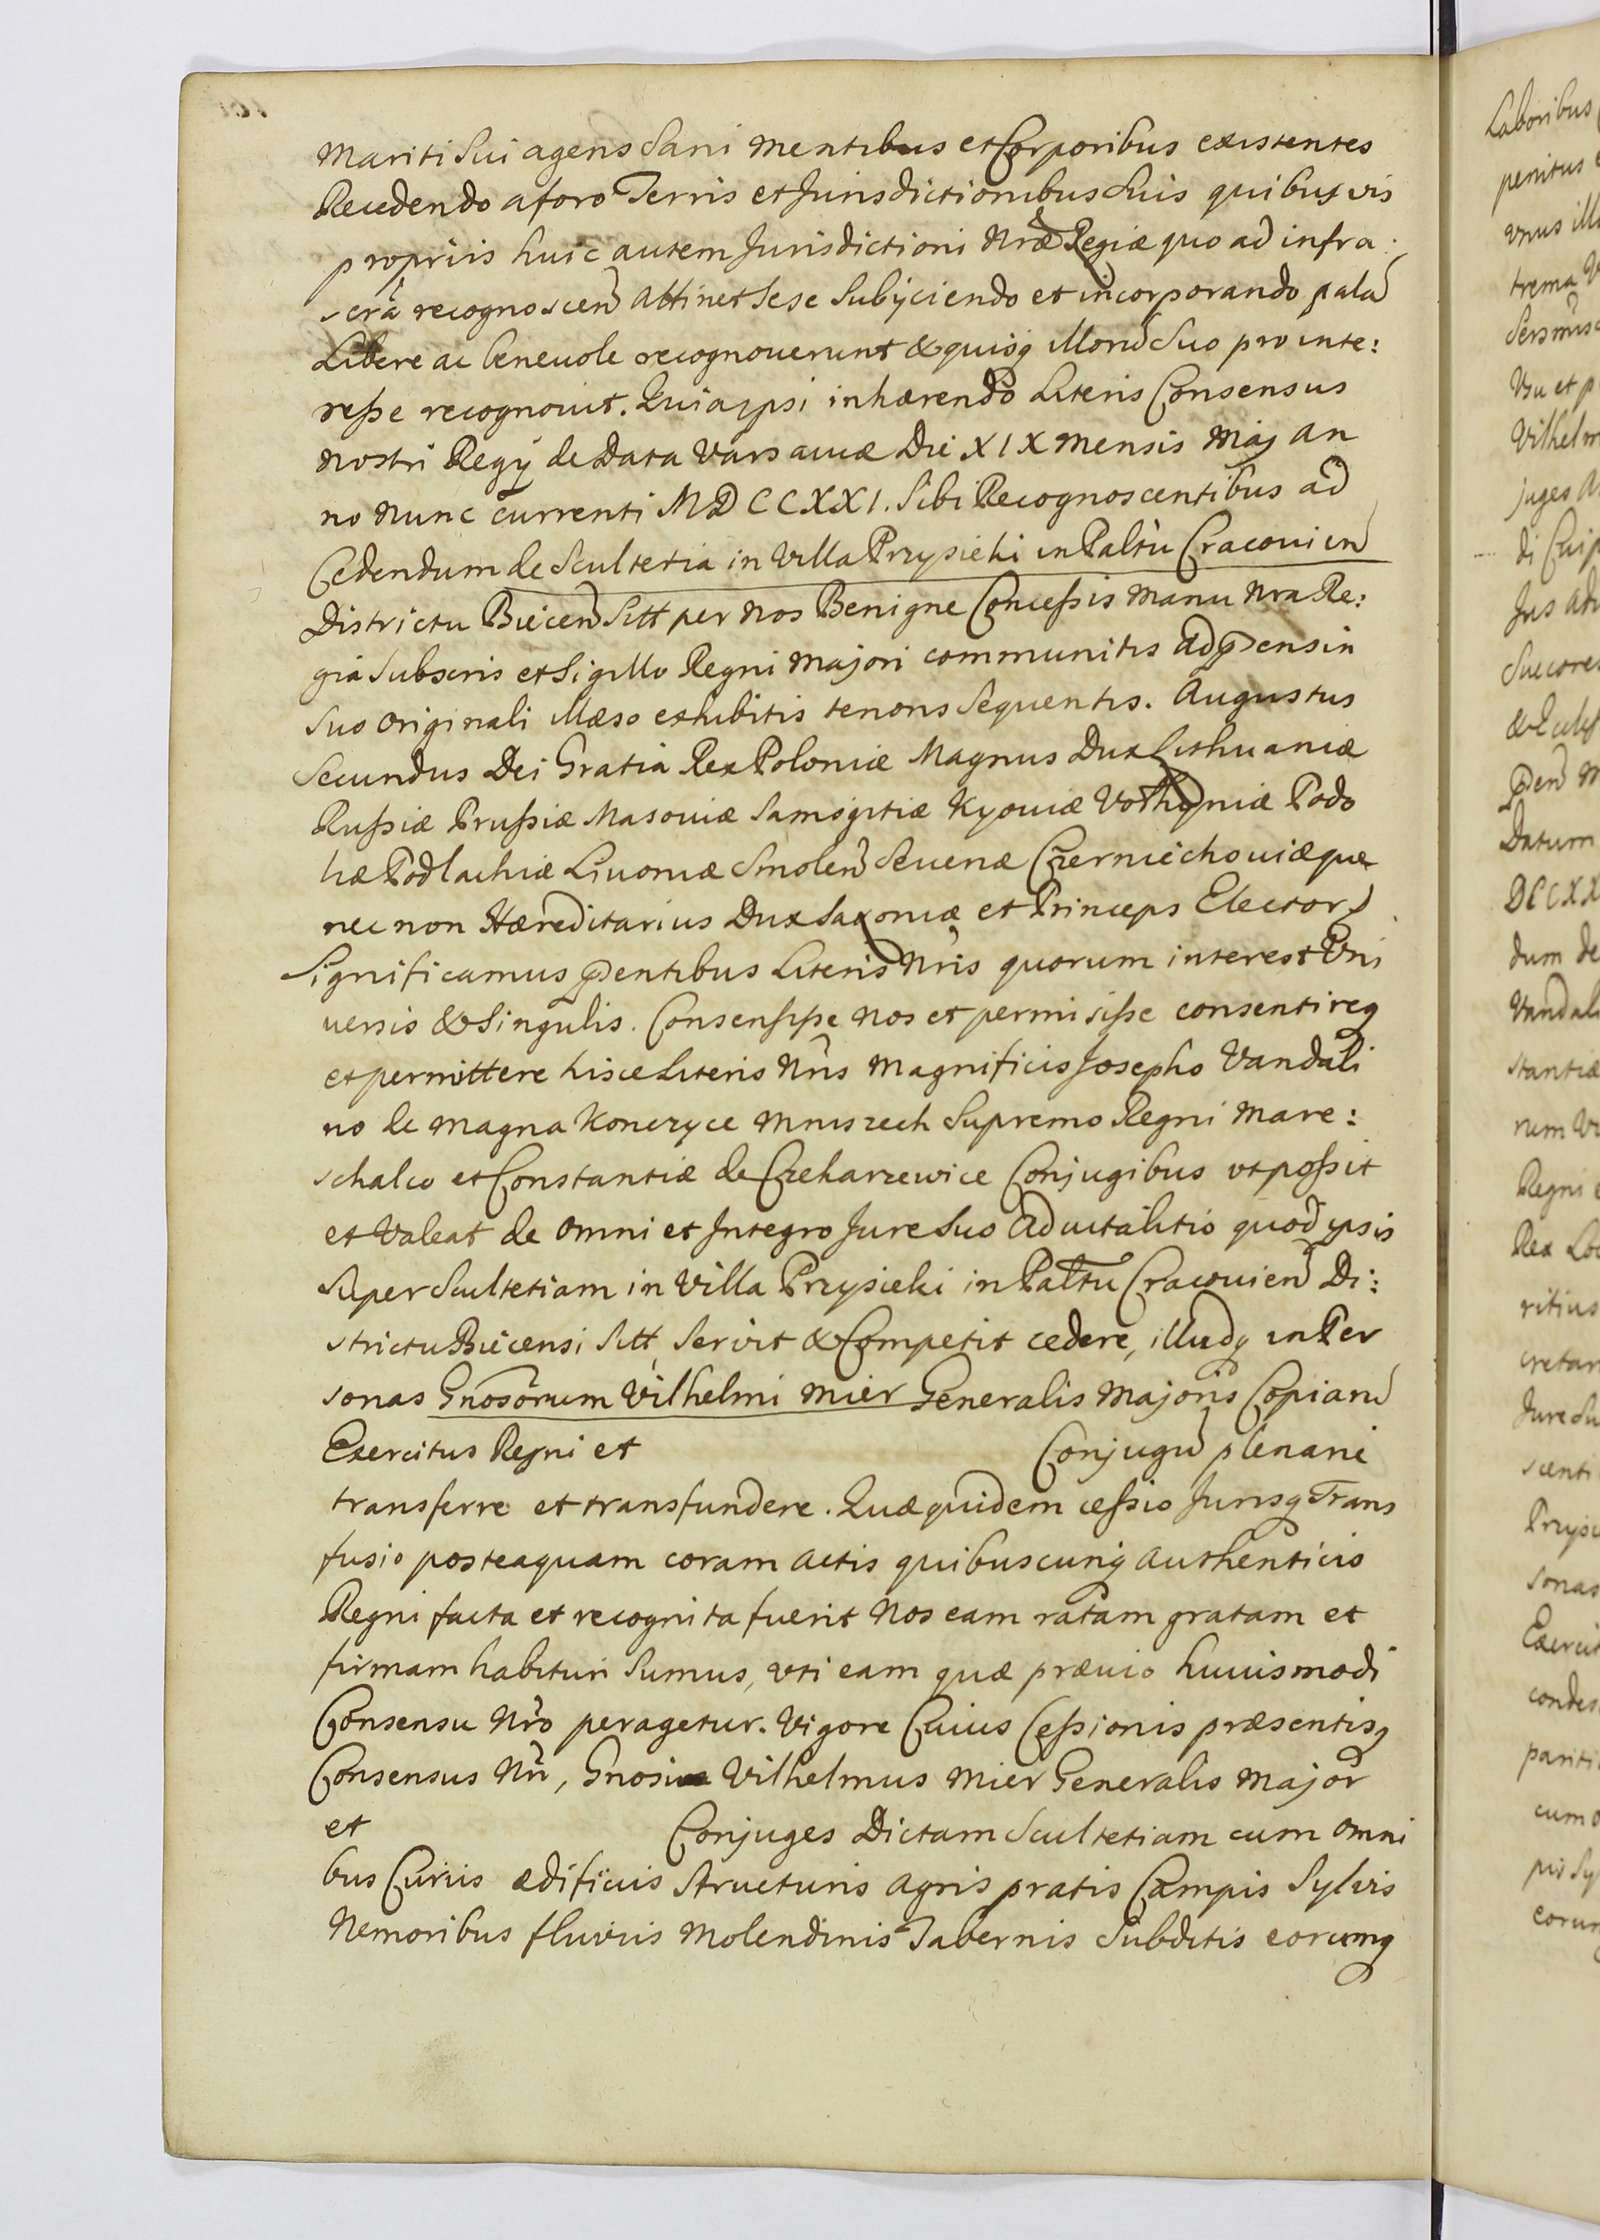 Mariti Sui agens Sani mentibus et Corporibus existentes
Recedendo a foro Terris et Jurisdictionibus Suis quibusvis
propriis huic autem Jurisdictioni Nræ Regiæ quo ad infra
scrã recognoscen attinet Sese Subÿciendo et incorporando palã
Libere ac beneuole recognouerunt & quisq Illorũ Suo pro inte:
resse recognouit. Quia ipsi inhærendo Literis Consensus
nostri Regÿ de Data Varsauiæ Die XIX mensis Maÿ An
no nunc currenti MDCCXXI. Sibi Recognoscentibus ad
Cedendum de Scultetia in Villa Przysieki in Paltũ Cracouien
Districtu Biecen Sitt per nos Benigne Concessis manu nra Re:
gia Subscris et Sigillo Regni majori communitis ad pñens in
suo originali Illæso exhibitis tenoris Sequentis. Augustus
Secundus Dei Gratia Rex Poloniæ Magnus Dux Lithuaniæ
Russiæ Prussiæ Masouiæ Samogitiæ Kyouiæ Volhyniæ Podo
liæ Podlachiæ Liuoniæ Smolen Seueriæ Czerniechouiæque
nec non Hæreditarius Dux Saxoniæ et Princeps Elector
Significamus pñentibus Literis Nris quorum interest Vni
uersis & Singulis. Consensisse nos et permisisse consentireq
et permittere hisce Literis Nris Magnificis Josepho Vandali
no de magna Konczyce Mniszech Supremo Regni Mare:
schalco et Constantiæ de Czekarzewice Conjugibus vt possit
et Valeat de omni et Integro Jure Suo Aduitalitio quod ipsis
Super Scultetiam in Villa Przysieki in Paltũ Cracouien Di:
strictu Biecensi Sitt, Servit & Competit cedere, illudq in Per
sonas Gnosorum Vilhelmi Mier Generalis Majoris Copiarũ
Exercitus Regni et Conjugũ plenarie
transferre et transfundere. Quæquidem cessio Jurisq Trans
fusio posteaquam coram Actis quibuscunq Authenticis
Regni facta et recognita fuerit Nos eam ratam gratam et
firmam habituri Sumus, vti eam quæ præuio huiusmodi
Consensu Nro peragetur. Vigore Cuius Cessionis præsentisq
Consensus Nri, Vilhelmus Mier Generalis Major
et Conjuges Dictam Scultetiam cum omni
bus Curiis ædificiis Structuris Agris pratis Campis Sylvis
Nemoribus fluviis Molendinis Tabernis Subditis eorumq